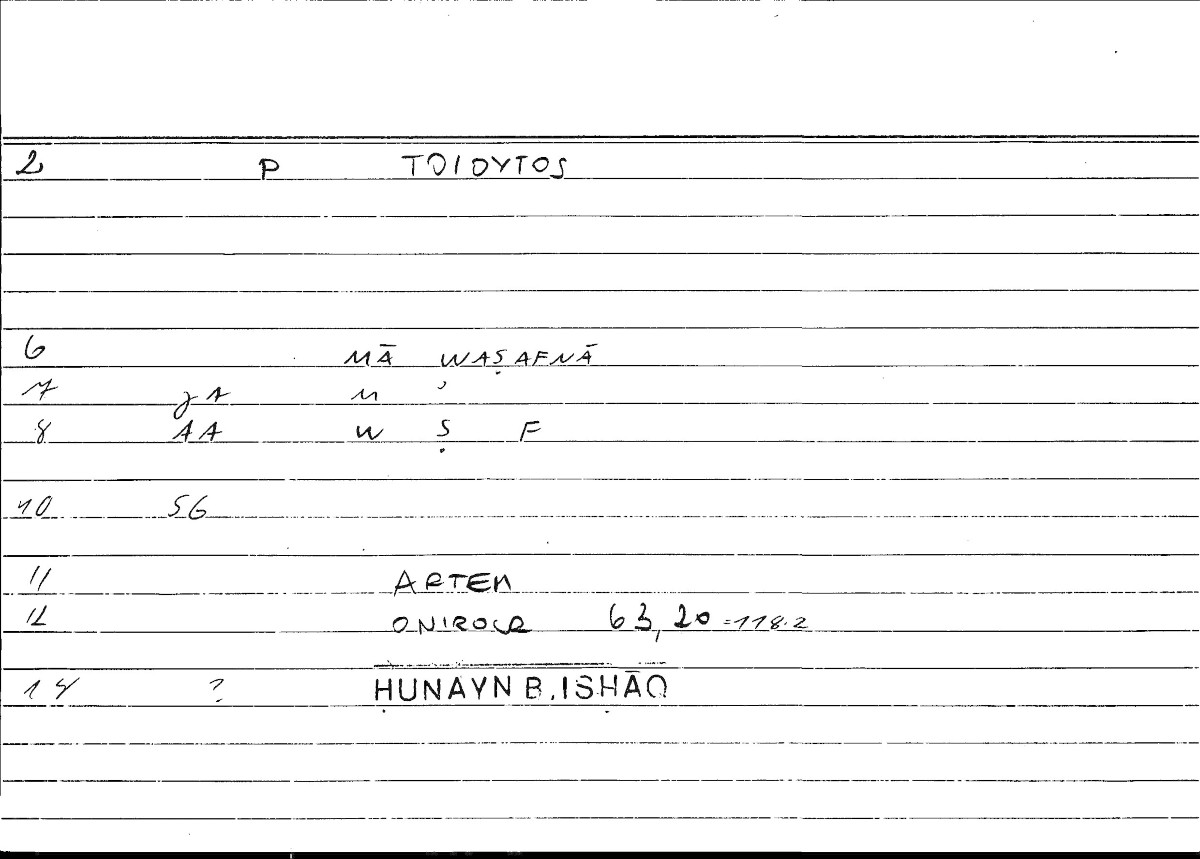 2 P TOIOYTOS
6 MĀ WAṢAFNĀ
7 JA M ʾ
8 AA W Ṣ F
10 SG
11 ARTEM
12 ONIROCR 63,20 =118.2
14 ? ḤUNAYN B. ISḤĀQ